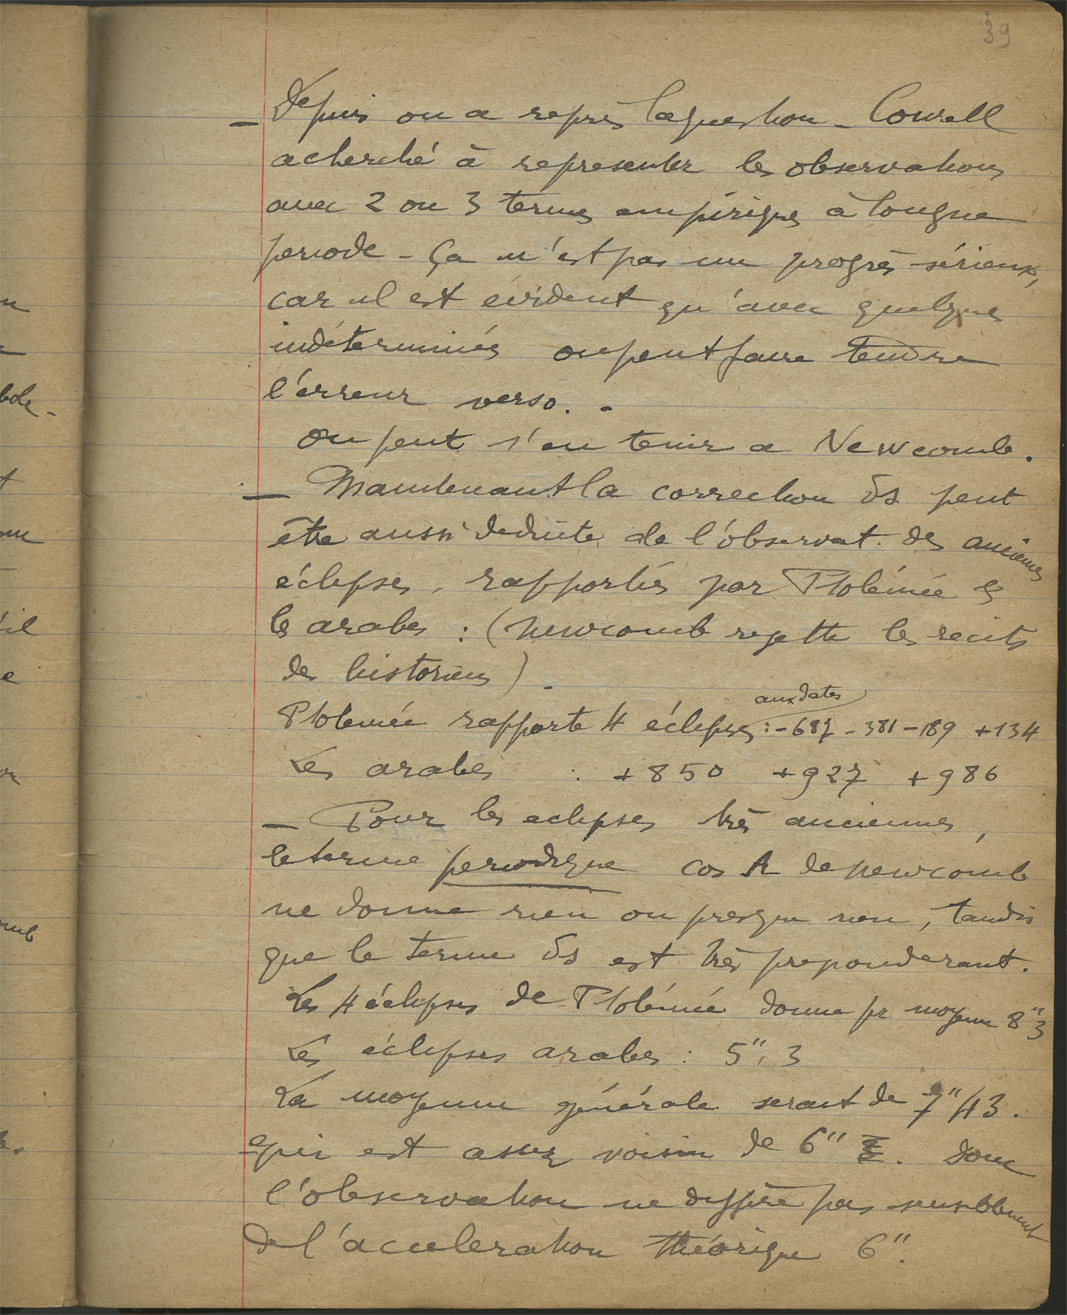 39
- Depuis on a repris la question - Cowell
a cherché à representer les observations
avec 2 ou 3 termes empiriques à longue
periode - Ça n'est pas un progrès sérieux,
car il est évident qu'avec quelques
indéterminés on peut faire tendre
l'erreur vers 0. -
On peut s'en tenir a Newcomb.
- Maintenant la correction δs peut
être aussi deduite de l'observat. des anciennes
éclipses, rapportés par Ptolémée &
les arabes : (Newcomb rejette les recits
des historiens).
aux dates
Ptolemée rapporte 4 éclipses : -687 -381 -189 +134
Les arabes : +850 +927 +986
- Pour les eclipses très anciennes,
le terme periodique cos A de Newcomb
ne donne rien ou presque rien, tandis
que le terme δs est très preponderant.
Les 4 éclipses de Ptolémée donne pr moyenne 8"3
Les éclipses arabes : 5",3
La moyenne générale serait de 7"43.
qui est assez voisin de 6". Donc
l'observation ne diffère pas sensiblement
de l'acceleration théorique 6".